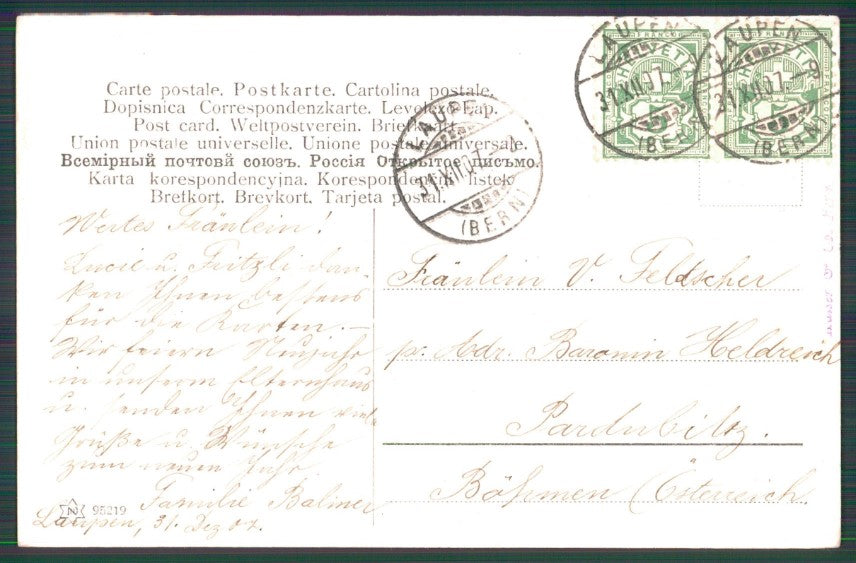 Carte postale. Postkarte. Cartolina postale.
Dopisnica Correspondenzkarte. Levelező-Lap.
Post card. Weltpostverein. Briefkaart.
Union postale universelle. Unione postale universale.
Всемірный почтовй союзъ. Россія Открытое письмо.
Karta korespondencyjna. Korespondenční listek.
Brefkort. Brevkort. Tarjeta postal.
FRANCO
HELVETIA
FRANCO
HELVETIA
LAUPEN
31.XII.07.-9
(BERN)
LAUPEN
31.XII.07.-9
(BERN)
LAUPEN
31.XII.07.
(BERN)
Wertes Fräulein!
Lucie u. Fritzli dan-
ken Ihnen bestens
für die Karten. —
Wir feiern Neujahr
in unserm Elternhaus
u. senden Ihnen viele
Grüße u. Wünsche
zum neuen Jahr
Familie Balmer
Laupen, 31. Dez 07.
95219
Fräulein V. Feldscher
pr. Adr. Baronin Heldreich
Pardubitz.
Böhmen (Österreich